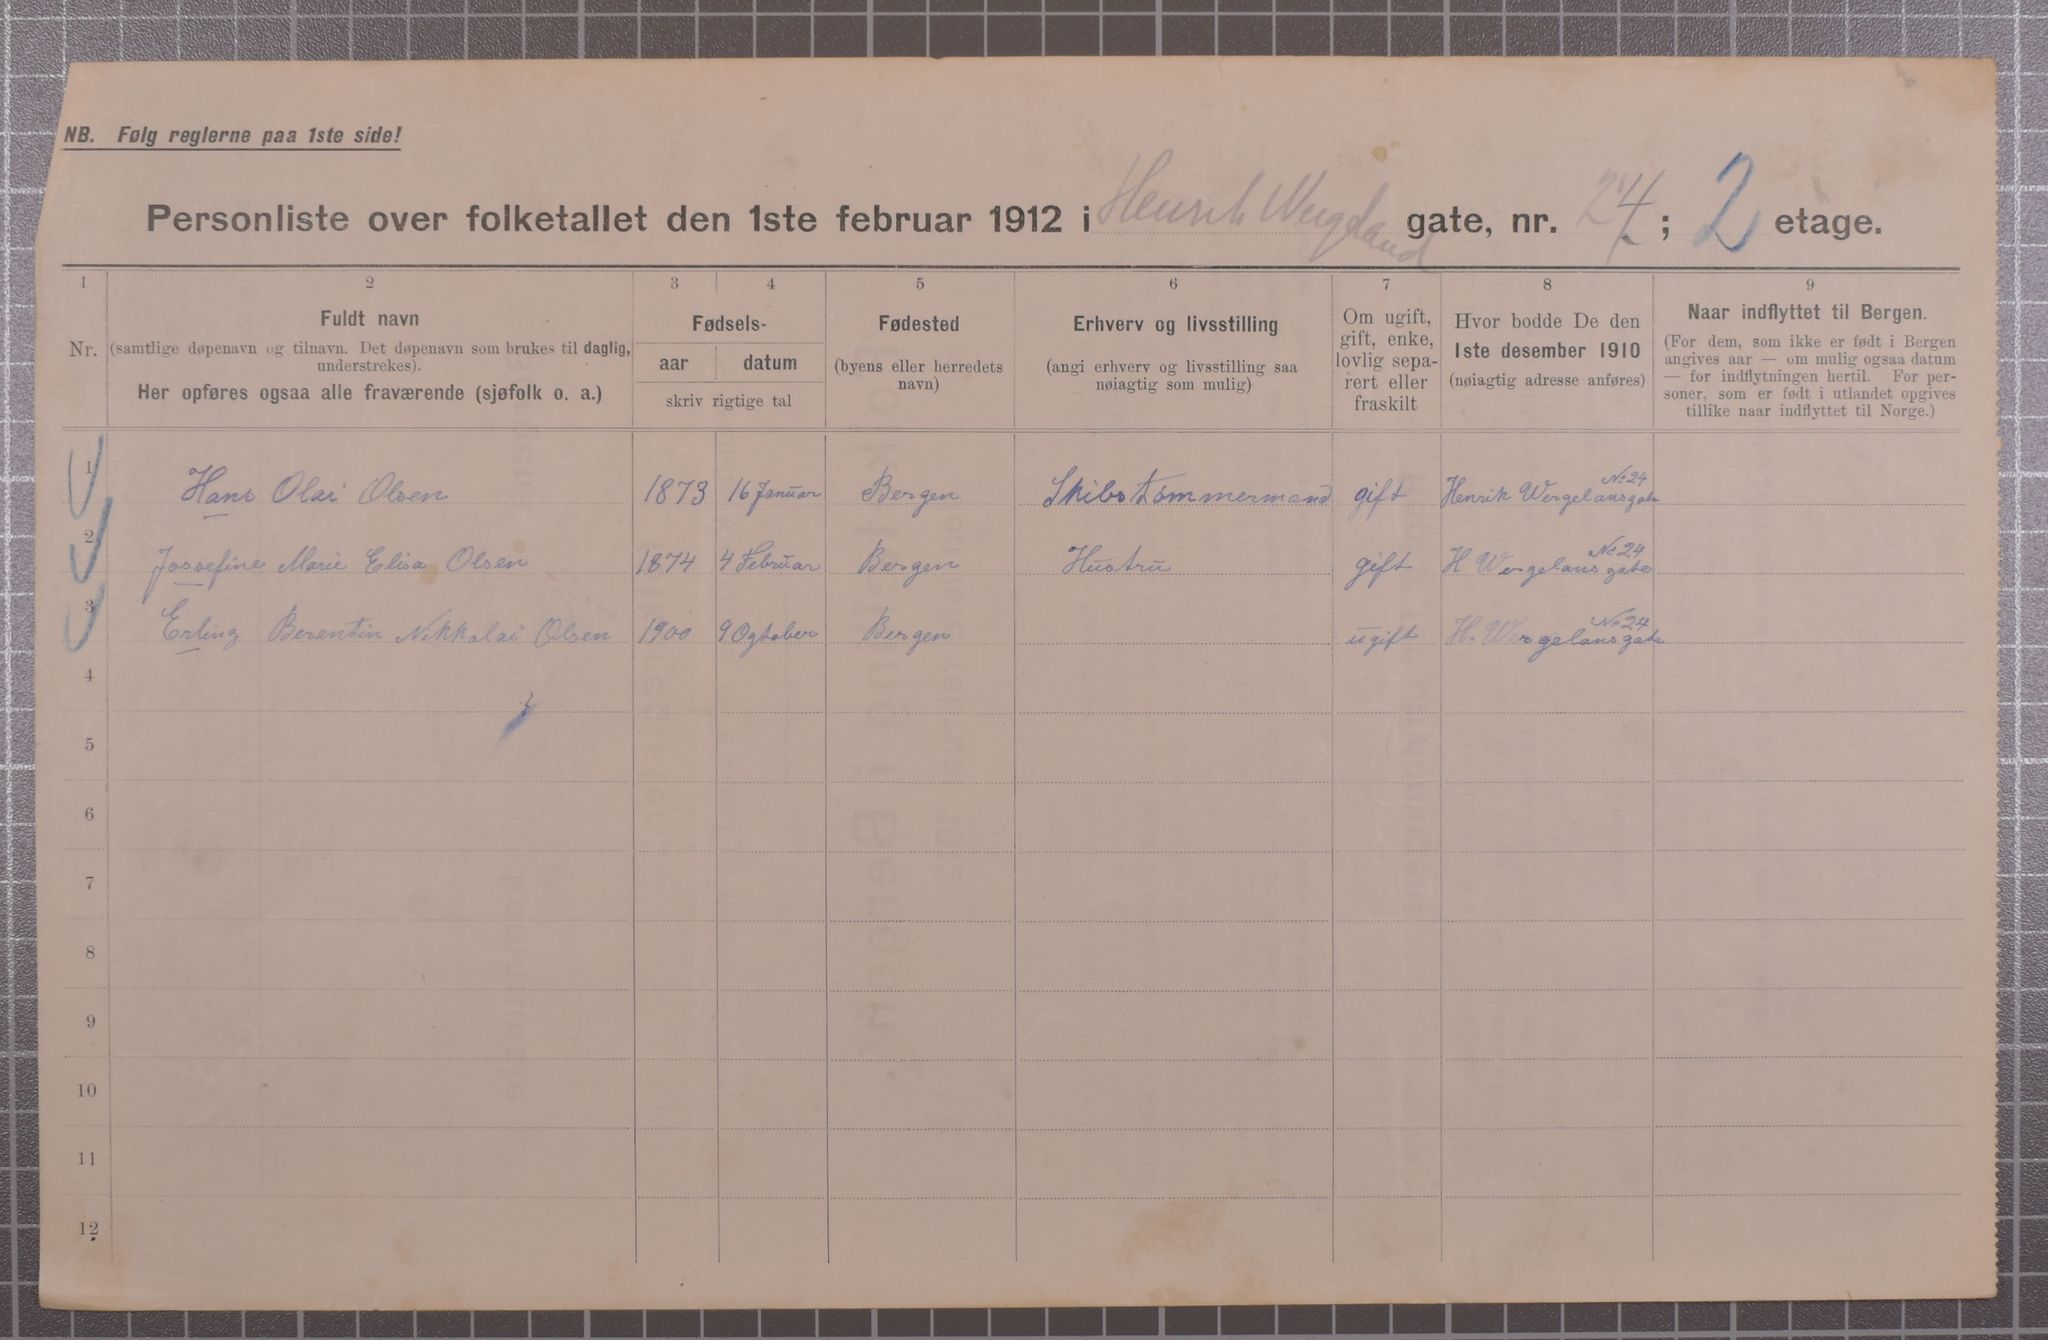 NB. Følg reglerne paa 1ste side!
Personliste over folketallet den 1ste februar 1912 i Henrik Wergeland gate, nr. 24; 2 etage.
1 2 3 4 5 6 7 8 9
Nr.
Fuldt navn
(samtlige døpenavn og tilnavn. Det døpenavn som brukes til daglig,
understrekes).
Her opføres ogsaa alle fraværende (sjøfolk o. a.)
Fødsels-
aar datum
skriv rigtige tal
Fødested
(byens eller herredets
navn)
Erhverv og livsstilling
(angi erhverv og livsstilling saa
nøiagtig som mulig)
Om ugift,
gift, enke,
lovlig sepa-
rert eller
fraskilt
Hvor bodde De den
1ste desember 1910
(nøiagtig adresse anføres)
Naar indflyttet til Bergen.
(For dem, som ikke er født i Bergen
angives aar — om mulig ogsaa datum
— for indflytningen hertil. For per-
soner, som er født i utlandet opgives
tillike naar indflyttet til Norge.)
1 Hans Olai Olsen 1873 16 Januar Bergen Skibstømmermand gift Henrik Wergelansgate No 24
2 Jossefine Marie Elisa Olsen 1874 4 Februar Bergen Hustru gift H Wergelansgate No 24
3 Erling Berentin Nikkolai Olsen 1900 9 Ogtober Bergen ugift H. Wergelansgate No 24
4
5
6
7
8
9
10
11
12